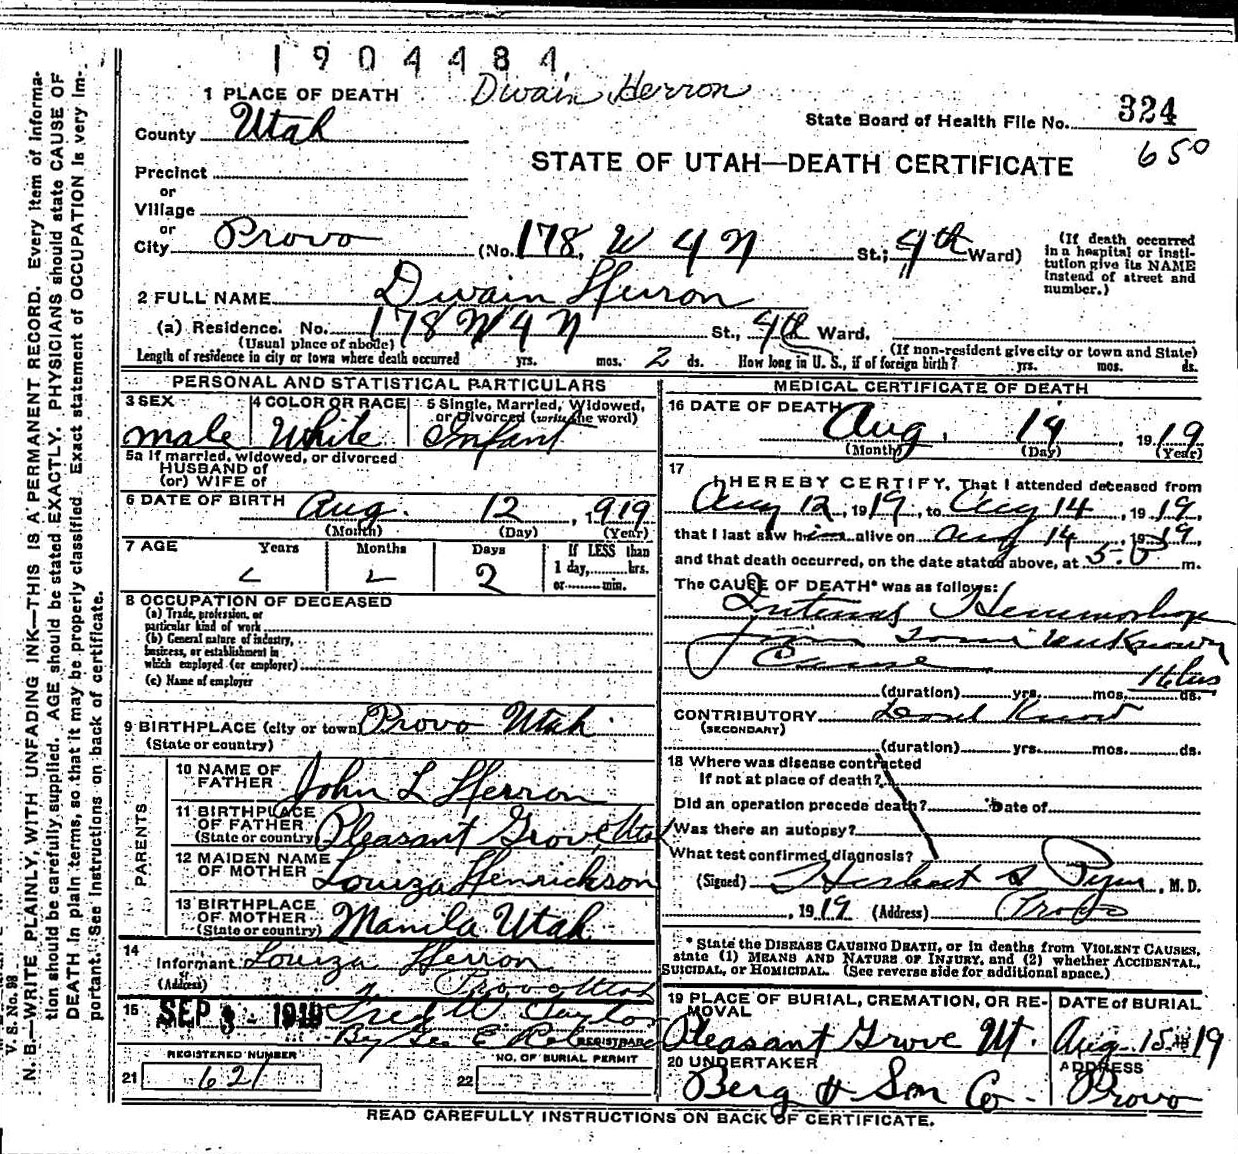 1904484
Dwain Herron
1 PLACE OF DEATH
County Utah
State Board of Health File No. 324
650
STATE OF UTAH—DEATH CERTIFICATE
Precinct
or
Village
or
City Provo (No. 178 W 4 N St.; 4th Ward)
(If death occurred in a hospital or institution give its NAME instead of street and number.)
2 FULL NAME Dwain Herron
(a) Residence. No. 178 W 4 N St., 4th Ward.
(Usual place of abode) (If non-resident give city or town and State)
Length of residence in city or town where death occurred yrs. mos. 2 ds. How long in U. S., if of foreign birth? yrs. mos. ds.
PERSONAL AND STATISTICAL PARTICULARS
3 SEX 4 COLOR OR RACE 5 Single, Married, Widowed, or Divorced (write the word)
male White Infant
5a If married, widowed, or divorced
HUSBAND of
(or) WIFE of
6 DATE OF BIRTH Aug. 12, 1919
(Month) (Day) (Year)
7 AGE Years Months Days If LESS than
2 1 day, hrs.
or min.
8 OCCUPATION OF DECEASED
(a) Trade, profession, or
particular kind of work
(b) General nature of industry,
business, or establishment in
which employed (or employer)
(c) Name of employer
9 BIRTHPLACE (city or town) Provo Utah
(State or country)
PARENTS
10 NAME OF FATHER John L Herron
11 BIRTHPLACE OF FATHER Pleasant Grove Utah
(State or country)
12 MAIDEN NAME OF MOTHER Louiza Henrickson
13 BIRTHPLACE OF MOTHER Manila Utah
(State or country)
14
Informant Louiza Herron
(Address) Provo Utah
15 SEP 3 - 1919 Fred W Taylor
By Geo E REGISTRAR
REGISTERED NUMBER NO. OF BURIAL PERMIT
21 621 22
MEDICAL CERTIFICATE OF DEATH
16 DATE OF DEATH
Aug. 14, 1919
(Month) (Day) (Year)
17
I HEREBY CERTIFY, That I attended deceased from
Aug 12, 1919, to Aug 14, 1919,
that I last saw him alive on Aug 14, 1919,
and that death occurred, on the date stated above, at m.
The CAUSE OF DEATH* was as follows:
Internal Hemorrhage
from some unknown
Cause
(duration) yrs. mos. ds.
CONTRIBUTORY
(SECONDARY)
(duration) yrs. mos. ds.
18 Where was disease contracted
if not at place of death?
Did an operation precede death? Date of
Was there an autopsy?
What test confirmed diagnosis?
(Signed) Herbert S Pyne, M.D.
, 1919 (Address) Provo
* State the DISEASE CAUSING DEATH, or in deaths from VIOLENT CAUSES,
state (1) MEANS AND NATURE OF INJURY, and (2) whether ACCIDENTAL,
SUICIDAL, or HOMICIDAL. (See reverse side for additional space.)
19 PLACE OF BURIAL, CREMATION, OR REMOVAL DATE of BURIAL
Pleasant Grove Ut. Aug. 15 1919
20 UNDERTAKER ADDRESS
Berg & Son Co. Provo
READ CAREFULLY INSTRUCTIONS ON BACK OF CERTIFICATE.
V. S. No. 98
N. B.—WRITE PLAINLY, WITH UNFADING INK—THIS IS A PERMANENT RECORD. Every item of information should be carefully supplied. AGE should be stated EXACTLY. PHYSICIANS should state CAUSE OF DEATH in plain terms, so that it may be properly classified. Exact statement of OCCUPATION is very important. See instructions on back of certificate.